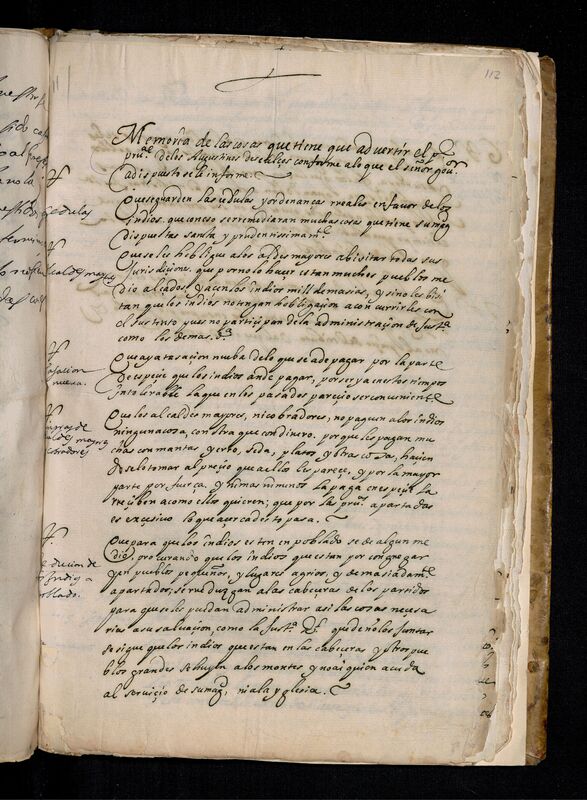 112
Memoria de las cosas que tiene que advertir el pe
prul de los Augustinos descalços conforme a lo que el señor gour
a dispuesto se le informe.
Que se guarden las cedulas y ordenanças rreales en favor de los
Indios. que con eso se rremediaran muchas cosas que tiene su magd
dispuestas santa y prudentissimamte
Que se les obligue a los alcaldes mayores a bisitar todas sus
Jurisdiçiones. que por no lo haçer estan muchos pueblos me
dio alçados y açen los indios mill demasias, y si no les bisi
tan que los indios no tengan hobligaçion acon currirles con
el sustento pues no partiçipan de la administraçion de Justa
como los demas. &a
Que aya tasaçion nueba de lo que se a de pagar por la parte
de espeçie que los indios an de pagar, por ser ya en estos tiempos
intolerable la que en los pasados pareçio ser conuiniente
Que los alcaldes mayores, ni cobradores, no paguen a los indios
ninguna cosa, con otra que con dinero. porque les pagan mu
chas con mantas, yerro, seda, platos, y otras cosas, haçien
doselo tomar al preçio que a ellos les pareçe, y por la mayor
parte por fuerça, y ni mas ni menos la paga en espeçie la
rreçiben a como ellos quieren; que por las prouas apartadas
es exçesiuo lo que açerca de esto pasa.
Que para que los indios esten en poblado se de algun me
dio. procurando que los indios que estan por congregar
y en pueblos pequeños, y lugares agrios, y demasiadamte
apartados, se rreduzgan a las cabeçeras de los partidos
para que se les puedan administrar asi las cosas neçesa
rias a su saluaçion, como la Justa. que de no los juntar
se sigue que los indios que estan en las cabeçeras y otros pue
blos grandes se huyen a los montes y no ai quien acuda
al seruiçio de su magd, ni a la yglesia.
cedulas
alcaldes mayores
tasaçion
nueva.
pagas de
alcaldes mayores
cobradores
rreduçion de
indios a
poblado.